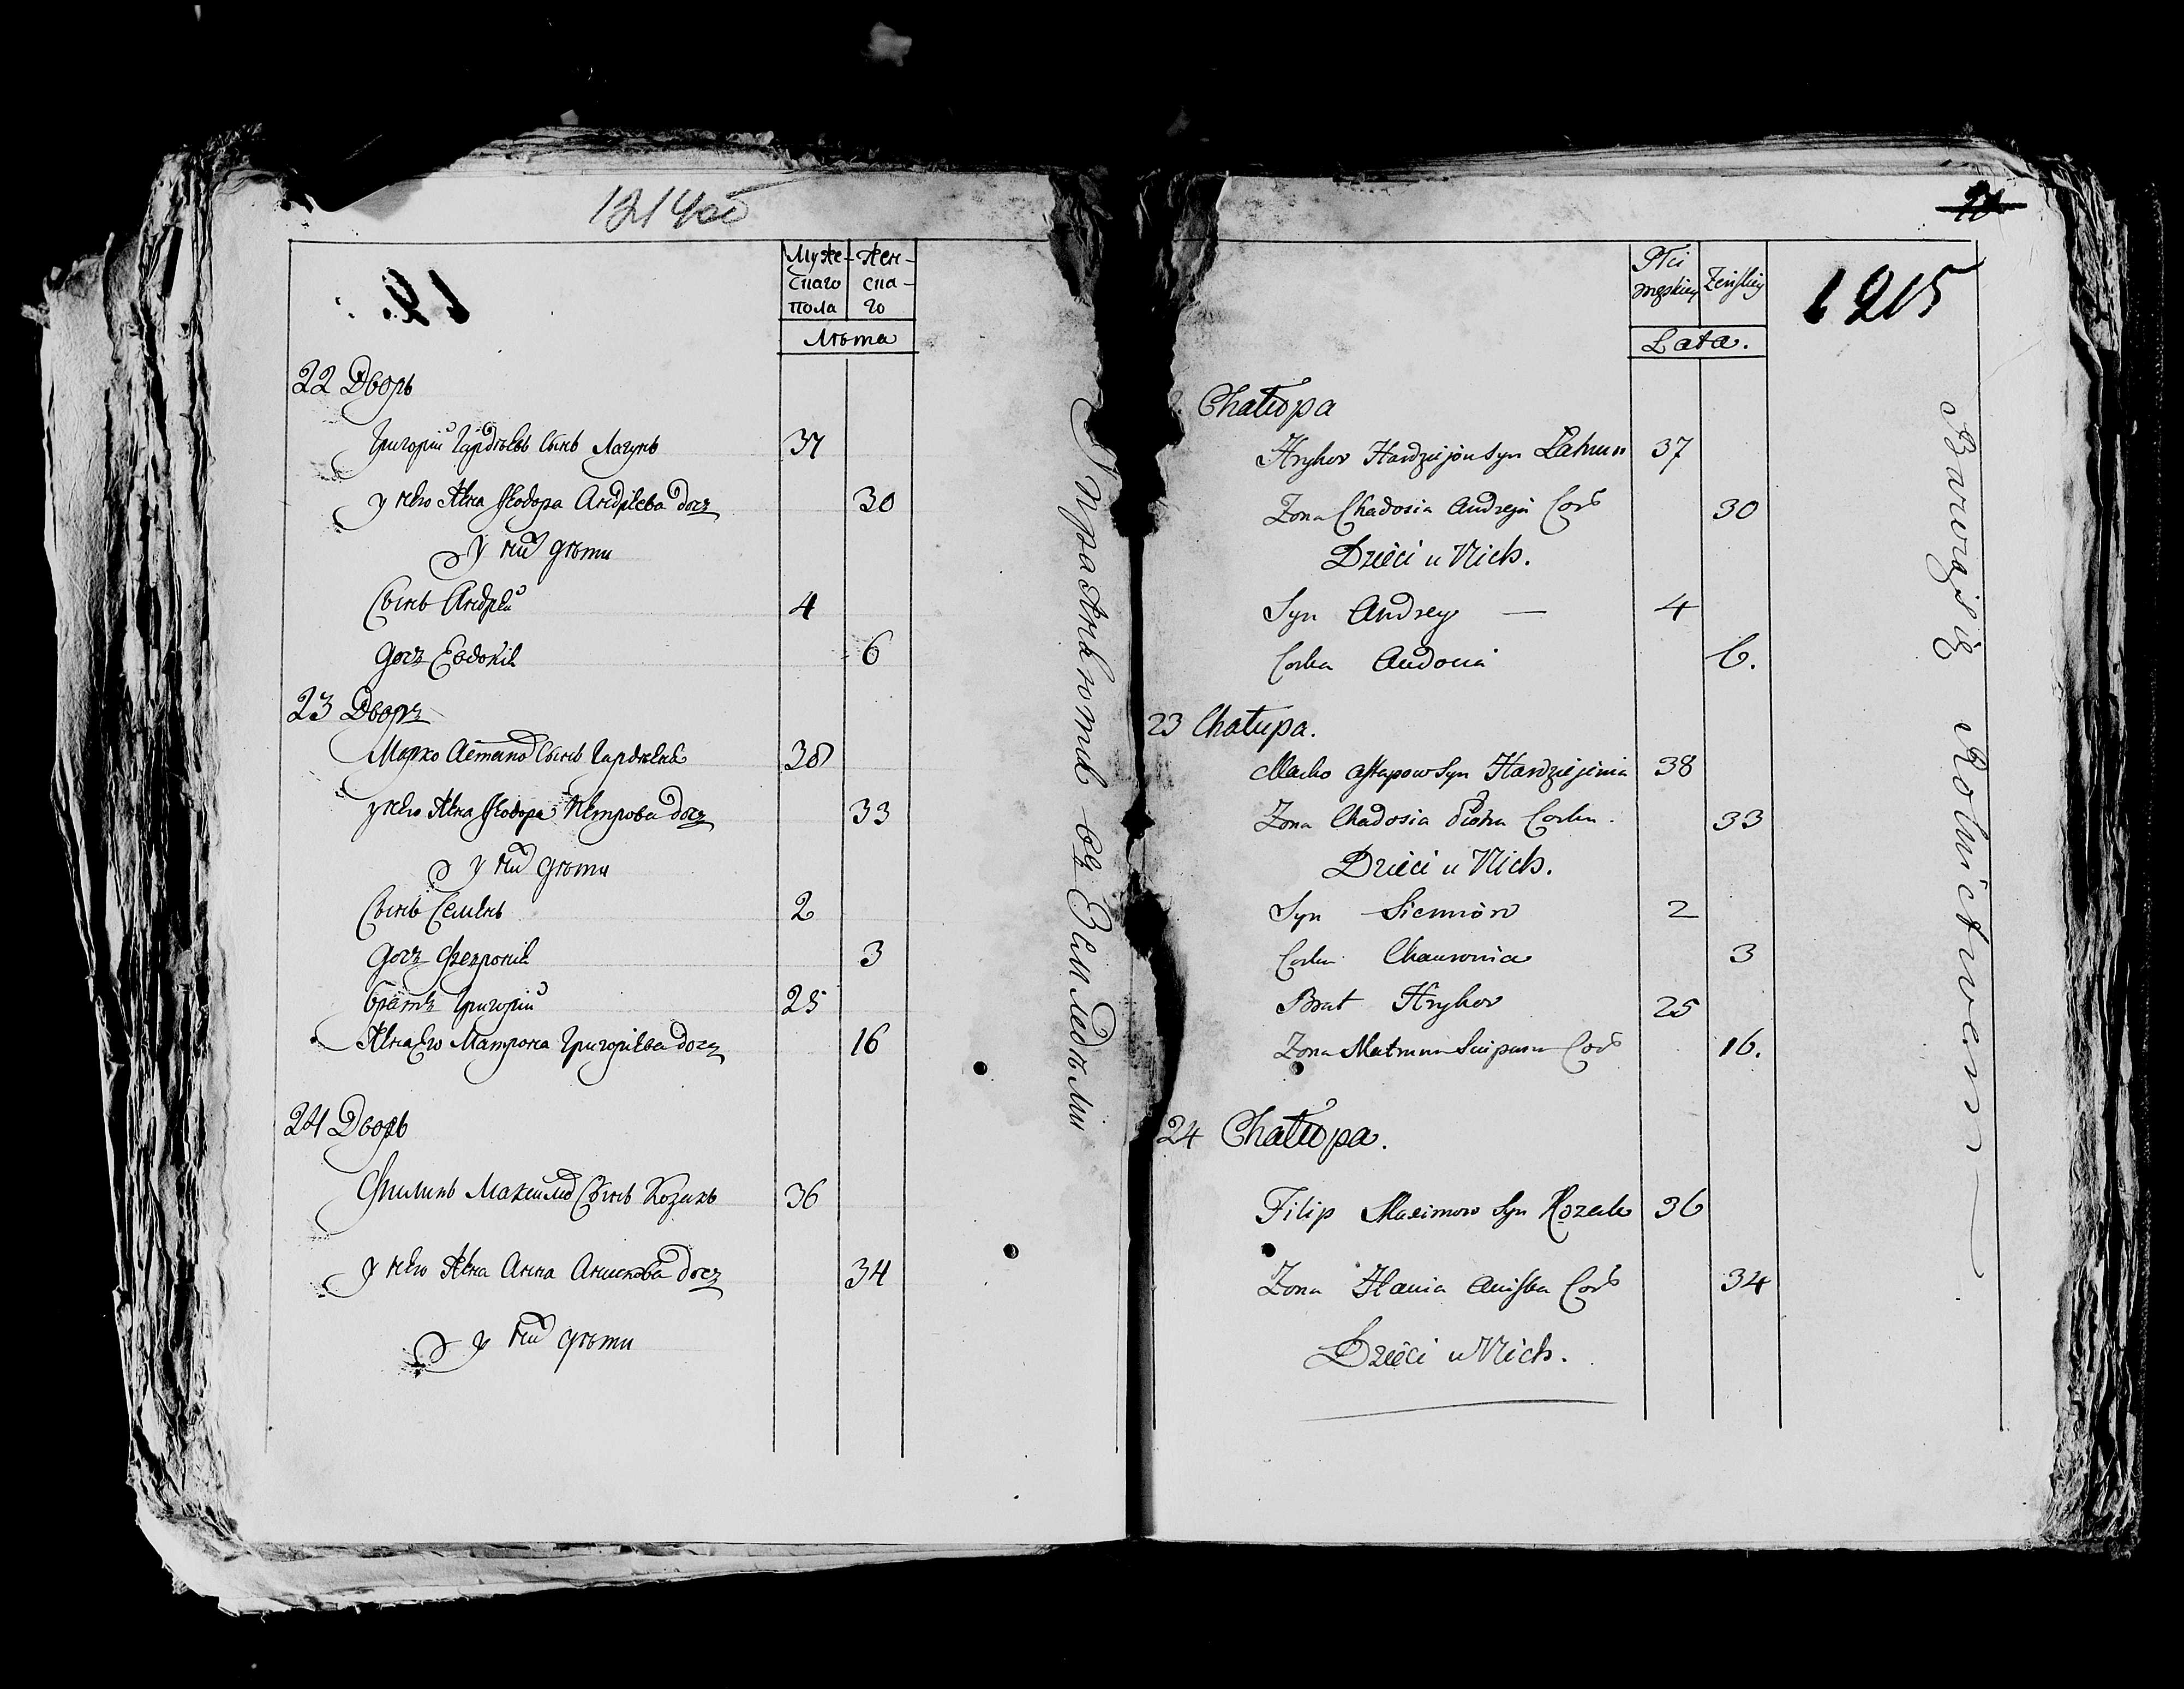 1214 об
Мужескаго пола
Женскаго
Лѣта
22 Дворъ
Григорій Гардѣевъ Сынъ Лагунъ 37
у него Жена Ѳеодора Андрѣева дочь 30
У них дѣти
Сынъ Андрей 4
дочь Евдокия 6
23 Дворъ
Марко Астапов Сынъ Гардѣеня 38
у него Жена Ѳеодора Петрова дочь 33
у них дѣти
Сынъ Семенъ 2
дочь Февронія 3
братъ Григорій 25
Жена Его Матрона Григоріева дочь 16
24 Дворъ
Филипъ Максимов Сынъ Козакъ 36
У него Жена Анна Анискова дочь 34
у них дѣти
Упражняются въ Земледѣлии
1215
Płci męskiey
Żeńskiey
Lata.
Chałupa
Hryhor Hardziejow Syn Lahun 37
Zona Chadosia Andreja Cor 30
Dzieci u Nich.
Syn Andrey — 4
Corka Audocia 6.
23 Chałupa.
Marko Astapow Syn Hardziejenia 38
Zona Chadosia Piotra Corka 33
Dzieci u Nich.
Syn Siemion 2
Corka Chauronia 3
Brat Hryhor 25
Zona Matruna Cor 16.
24 Chałupa.
Filip Maximow Syn Kozak 36
Zona Hania Aniska Cor 34
Dzieci u Nich.
Bawią się Rolnictwem